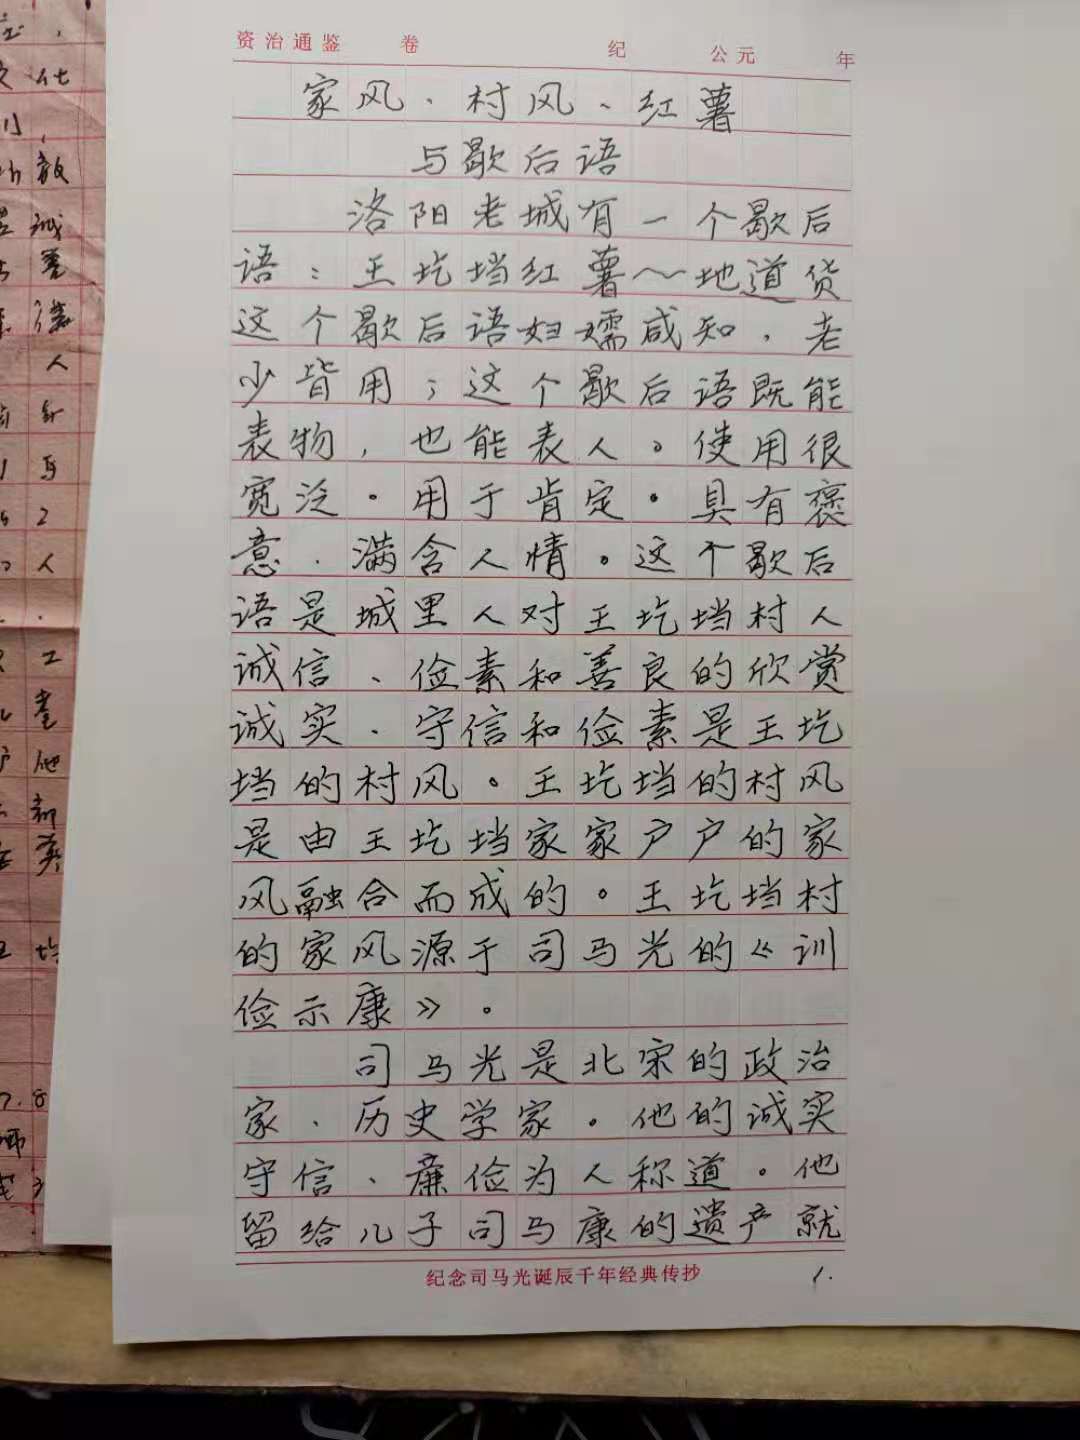 资治通鉴 卷 纪 公元 年
家风、村风、红薯
与歇后语
洛阳老城有一个歇后
语：王圪垱红薯～地道货
这个歇后语妇孺咸知，老
少皆用；这个歇后语既能
表物，也能表人。使用很
宽泛。用于肯定。具有褒
意、满含人情。这个歇后
语是城里人对王圪垱村人
诚信、俭素和善良的欣赏
诚实、守信和俭素是王圪
垱的村风。王圪垱的村风
是由王圪垱家家户户的家
风融合而成的。王圪垱村
的家风源于司马光的《训
俭示康》。
司马光是北宋的政治
家、历史学家。他的诚实
守信、廉俭为人称道。他
留给儿子司马康的遗产就
纪念司马光诞辰千年经典传抄 1.